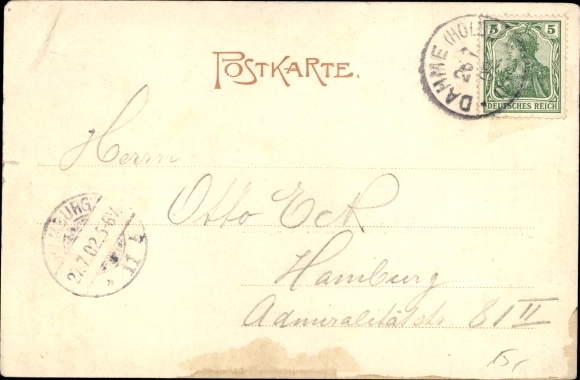 POSTKARTE.
5 5
DEUTSCHES REICH
DAHME (HOLST
26 7
02
Herrn
Otto Eck
Hamburg
Admiralitätstr 81 II
HAMBURG
27.7.02.5-6V.
* 11 *